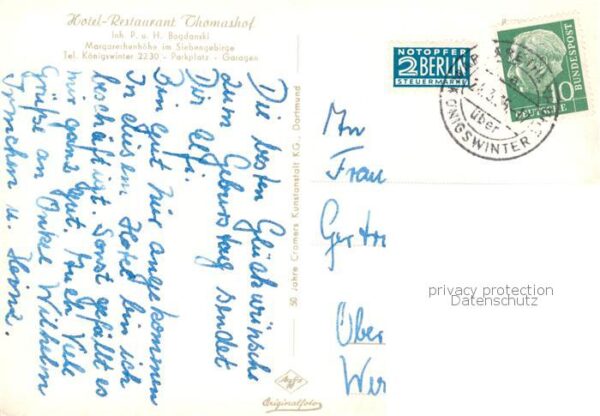 Hotel-Restaurant Thomashof
Inh. P. u. H. Bogdanski
Margarethenhöhe im Siebengebirge
Tel. Königswinter 2230 - Parkplatz - Garagen
Die besten Glückwünsche
zum Geburtstag sendet
Dir Elfi.
Bin gut hier angekommen
In diesem Hotel bin ich
beschäftigt. Sonst gefällt es
mir ganz gut. Auch Viele
Grüße an Onkel Wilhelm
Irmchen u. Heinz.
50 Jahre Cramers Kunstanstalt KG., Dortmund
Agfa
Originalfoto
NOTOPFER
2 BERLIN
STEUERMARKE
über
KÖNIGSWINTER
DEUTSCHE
BUNDESPOST
10
An
Frau
Gertr
Über
Wer
privacy protection
Datenschutz